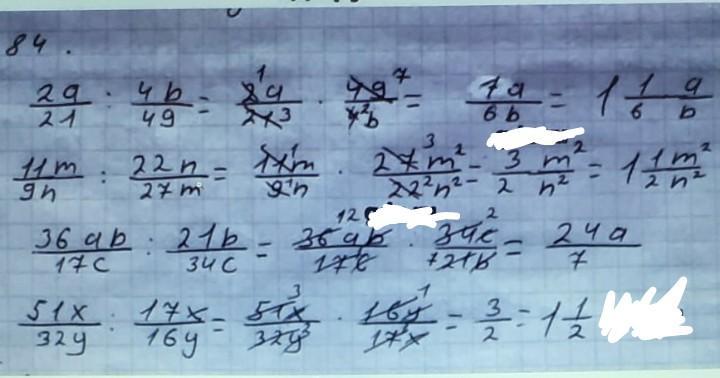 84.
2a/21 : 4b/49 = 2a/21 3 1 · 49 7/4 2 b = 7a/6b = 1 1/6 a/b
11m/9n : 22n/27m = 11 1 m/9 1 n · 27 3 m²/22 2 n² = 3/2 m²/n² = 1 1/2 m²/n²
36ab/17c : 21b/34c = 36 12 ab/17c · 34c 2/7 21b = 24a/7
51x/32y : 17x/16y = 51 3 x/32y 2 · 16y 1/17x = 3/2 = 1 1/2